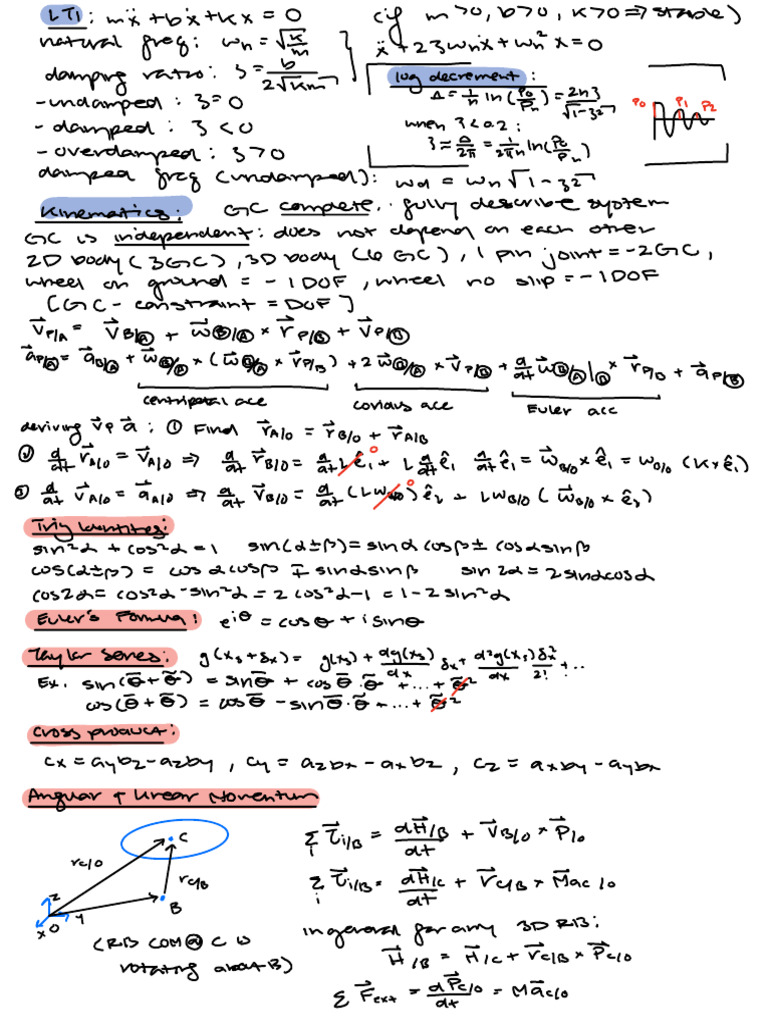 LTI: mẍ + bẋ + kx = 0 (if m>0, b>0, k>0 ⇒ stable)
natural freq: ωn = √(k/m)
ẍ + 2ζωnẋ + ωn²x = 0
damping ratio: ζ = b/(2√(km))
log decrement:
Δ = 1/n ln(P0/Pn) = 2πζ/√(1-ζ²)
when ζ<0.2:
ζ ≈ Δ/2π = 1/(2πn) ln(P0/Pn)
P0 P1 P2
-undamped: ζ=0
-damped: ζ<0
-overdamped: ζ>0
damped freq (undamped): ωd = ωn√(1-ζ²)
Kinematics: GC complete: fully describe system
GC is independent: does not depend on each other
2D body (3GC), 3D body (6 GC), 1 pin joint = -2GC,
wheel on ground = -1DOF, wheel no slip = -1DOF
[GC - constraint = DOF]
v⃗P/Ⓐ = v⃗B/Ⓐ + ω⃗Ⓑ/Ⓐ × r⃗P/Ⓑ + v⃗P/Ⓑ
a⃗P/Ⓐ = a⃗B/Ⓐ + ω⃗Ⓑ/Ⓐ × (ω⃗Ⓑ/Ⓐ × r⃗P/B) + 2ω⃗Ⓑ/Ⓐ × v⃗P/Ⓑ + d/dt ω⃗Ⓑ/Ⓐ|Ⓑ × r⃗P/B + a⃗P/Ⓑ
centripetal acc coriolis acc Euler acc
deriving v⃗ & a⃗: ① Find r⃗A/O = r⃗B/O + r⃗A/B
② d/dt r⃗A/O = v⃗A/O ⇒ d/dt r⃗B/O = d/dt L ê1 0 + L d/dt ê1 d/dt ê1 = ω⃗B/O × ê1 = ωB/O (k × ê1)
③ d/dt v⃗A/O = a⃗A/O ⇒ d/dt v⃗B/O = d/dt (LωB/O) 0 ê2 + LωB/O (ω⃗B/O × ê2)
Trig Identities:
sin²α + cos²α = 1 sin(α±β) = sinα cosβ ± cosα sinβ
cos(α±β) = cosα cosβ ∓ sinα sinβ sin2α = 2sinαcosα
cos2α = cos²α - sin²α = 2cos²α - 1 = 1 - 2sin²α
Euler's Formula: e^iθ = cosθ + i sinθ
Taylor Series: g(xs + δx) = g(xs) + dg(xs)/dx δx + d²g(xs)/dx δx²/2! + ..
Ex. sin(θ̄ + θ̃) = sinθ̄ + cosθ̄·θ̃ + ... + θ̃²
cos(θ̄ + θ̃) = cosθ̄ - sinθ̄·θ̃ + ... + θ̃²
Cross product:
cx = aybz - azby, cy = azbx - axbz, cz = axby - aybx
Angular + Linear Momentum
C
rC/O
rC/B
B
z
y
x O
(RB COM @ C is
rotating about B)
Σi τ⃗i/B = dH⃗/B/dt + v⃗B/O × P⃗/O
Σi τ⃗i/B = dH⃗/C/dt + r⃗C/B × Ma⃗C/O
in general for any 3D RB:
H⃗/B = H⃗/C + r⃗C/B × P⃗C/O
Σ F⃗ext = dP⃗C/O/dt = Ma⃗C/O